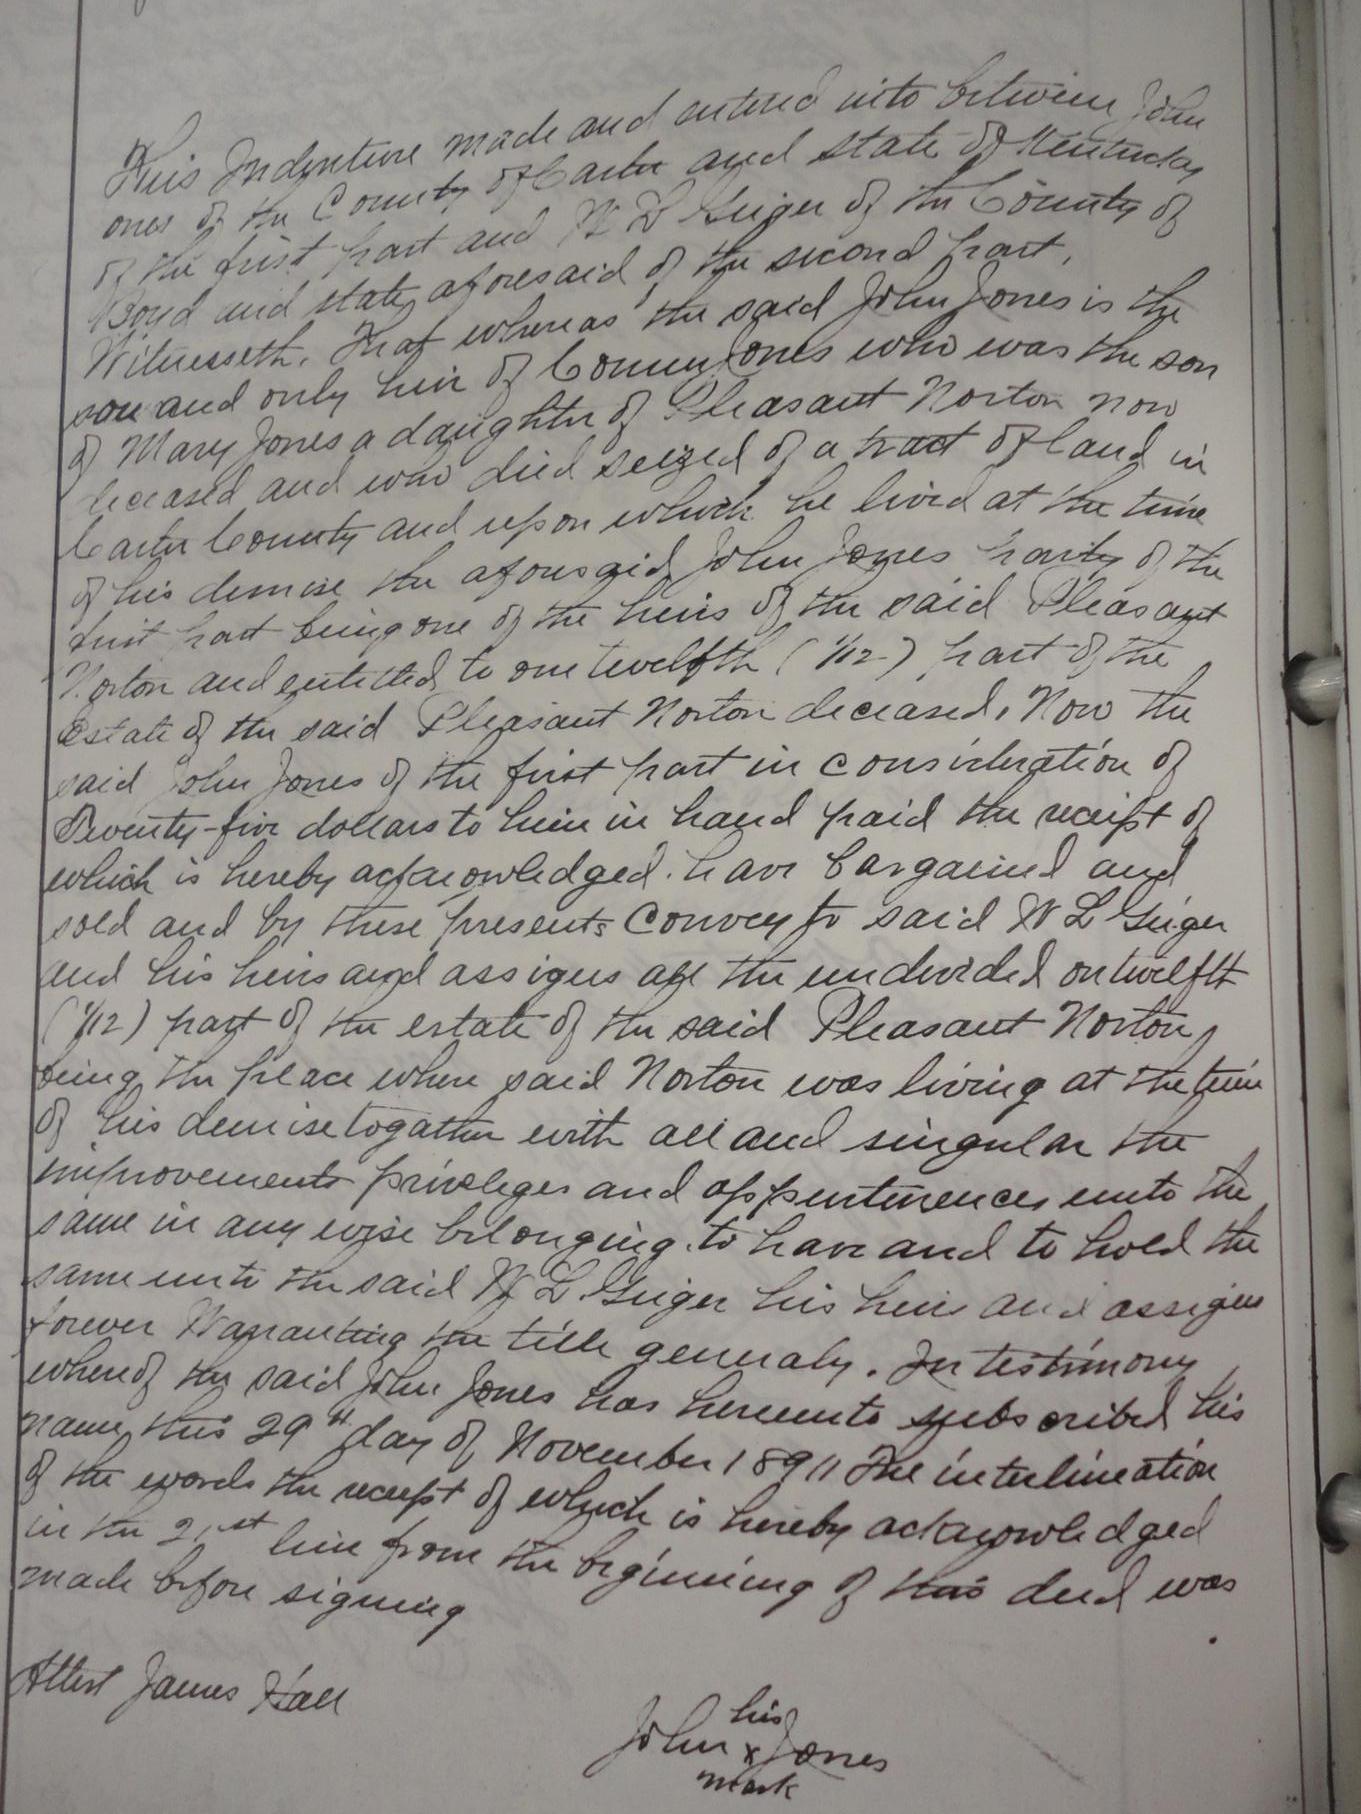 This Indenture made and entered into between John
ones of the County of Carter and state of Kentucky
of the first part and W L Geiger of the County of
Boyd and state aforesaid of the second part,
Witnesseth. That whereas the said John Jones is the
son and only heir of Jones who was the son
of Mary Jones a daughter of Pleasant Norton now
deceased and who died seized of a tract of land in
Carter County and upon which he lived at the time
of his demise the aforesaid John Jones party of the
first part being one of the heirs of the said Pleasant
Norton and entitled to one twelfth (1/12) part of the
Estate of the said Pleasant Norton deceased, Now the
said John Jones of the first part in consideration of
Twenty-five dollars to him in hand paid the receipt of
which is hereby acknowledged. have bargained and
sold and by these presents Convey to said W L Geiger
and his heirs and assigns all the undivided on twelfth
(1/12) part of the estate of the said Pleasant Norton,
being the place where said Norton was living at the time
of his demise togather with all and singular the
improvements privileges and appurtenences unto the
same in any wise belonging. to have and to hold the
same unto the said W L Geiger his heirs and assigns
forever Warranting the title generaly. In testimony
whereof the said John Jones has hereunto subscribed his
name this 29th day of November 1891 The interlineation
of the words the receipt of which is hereby acknowledged
in the 21st line from the beginning of this deed was
made before signing
Attest James Hall
his
John x Jones
mark